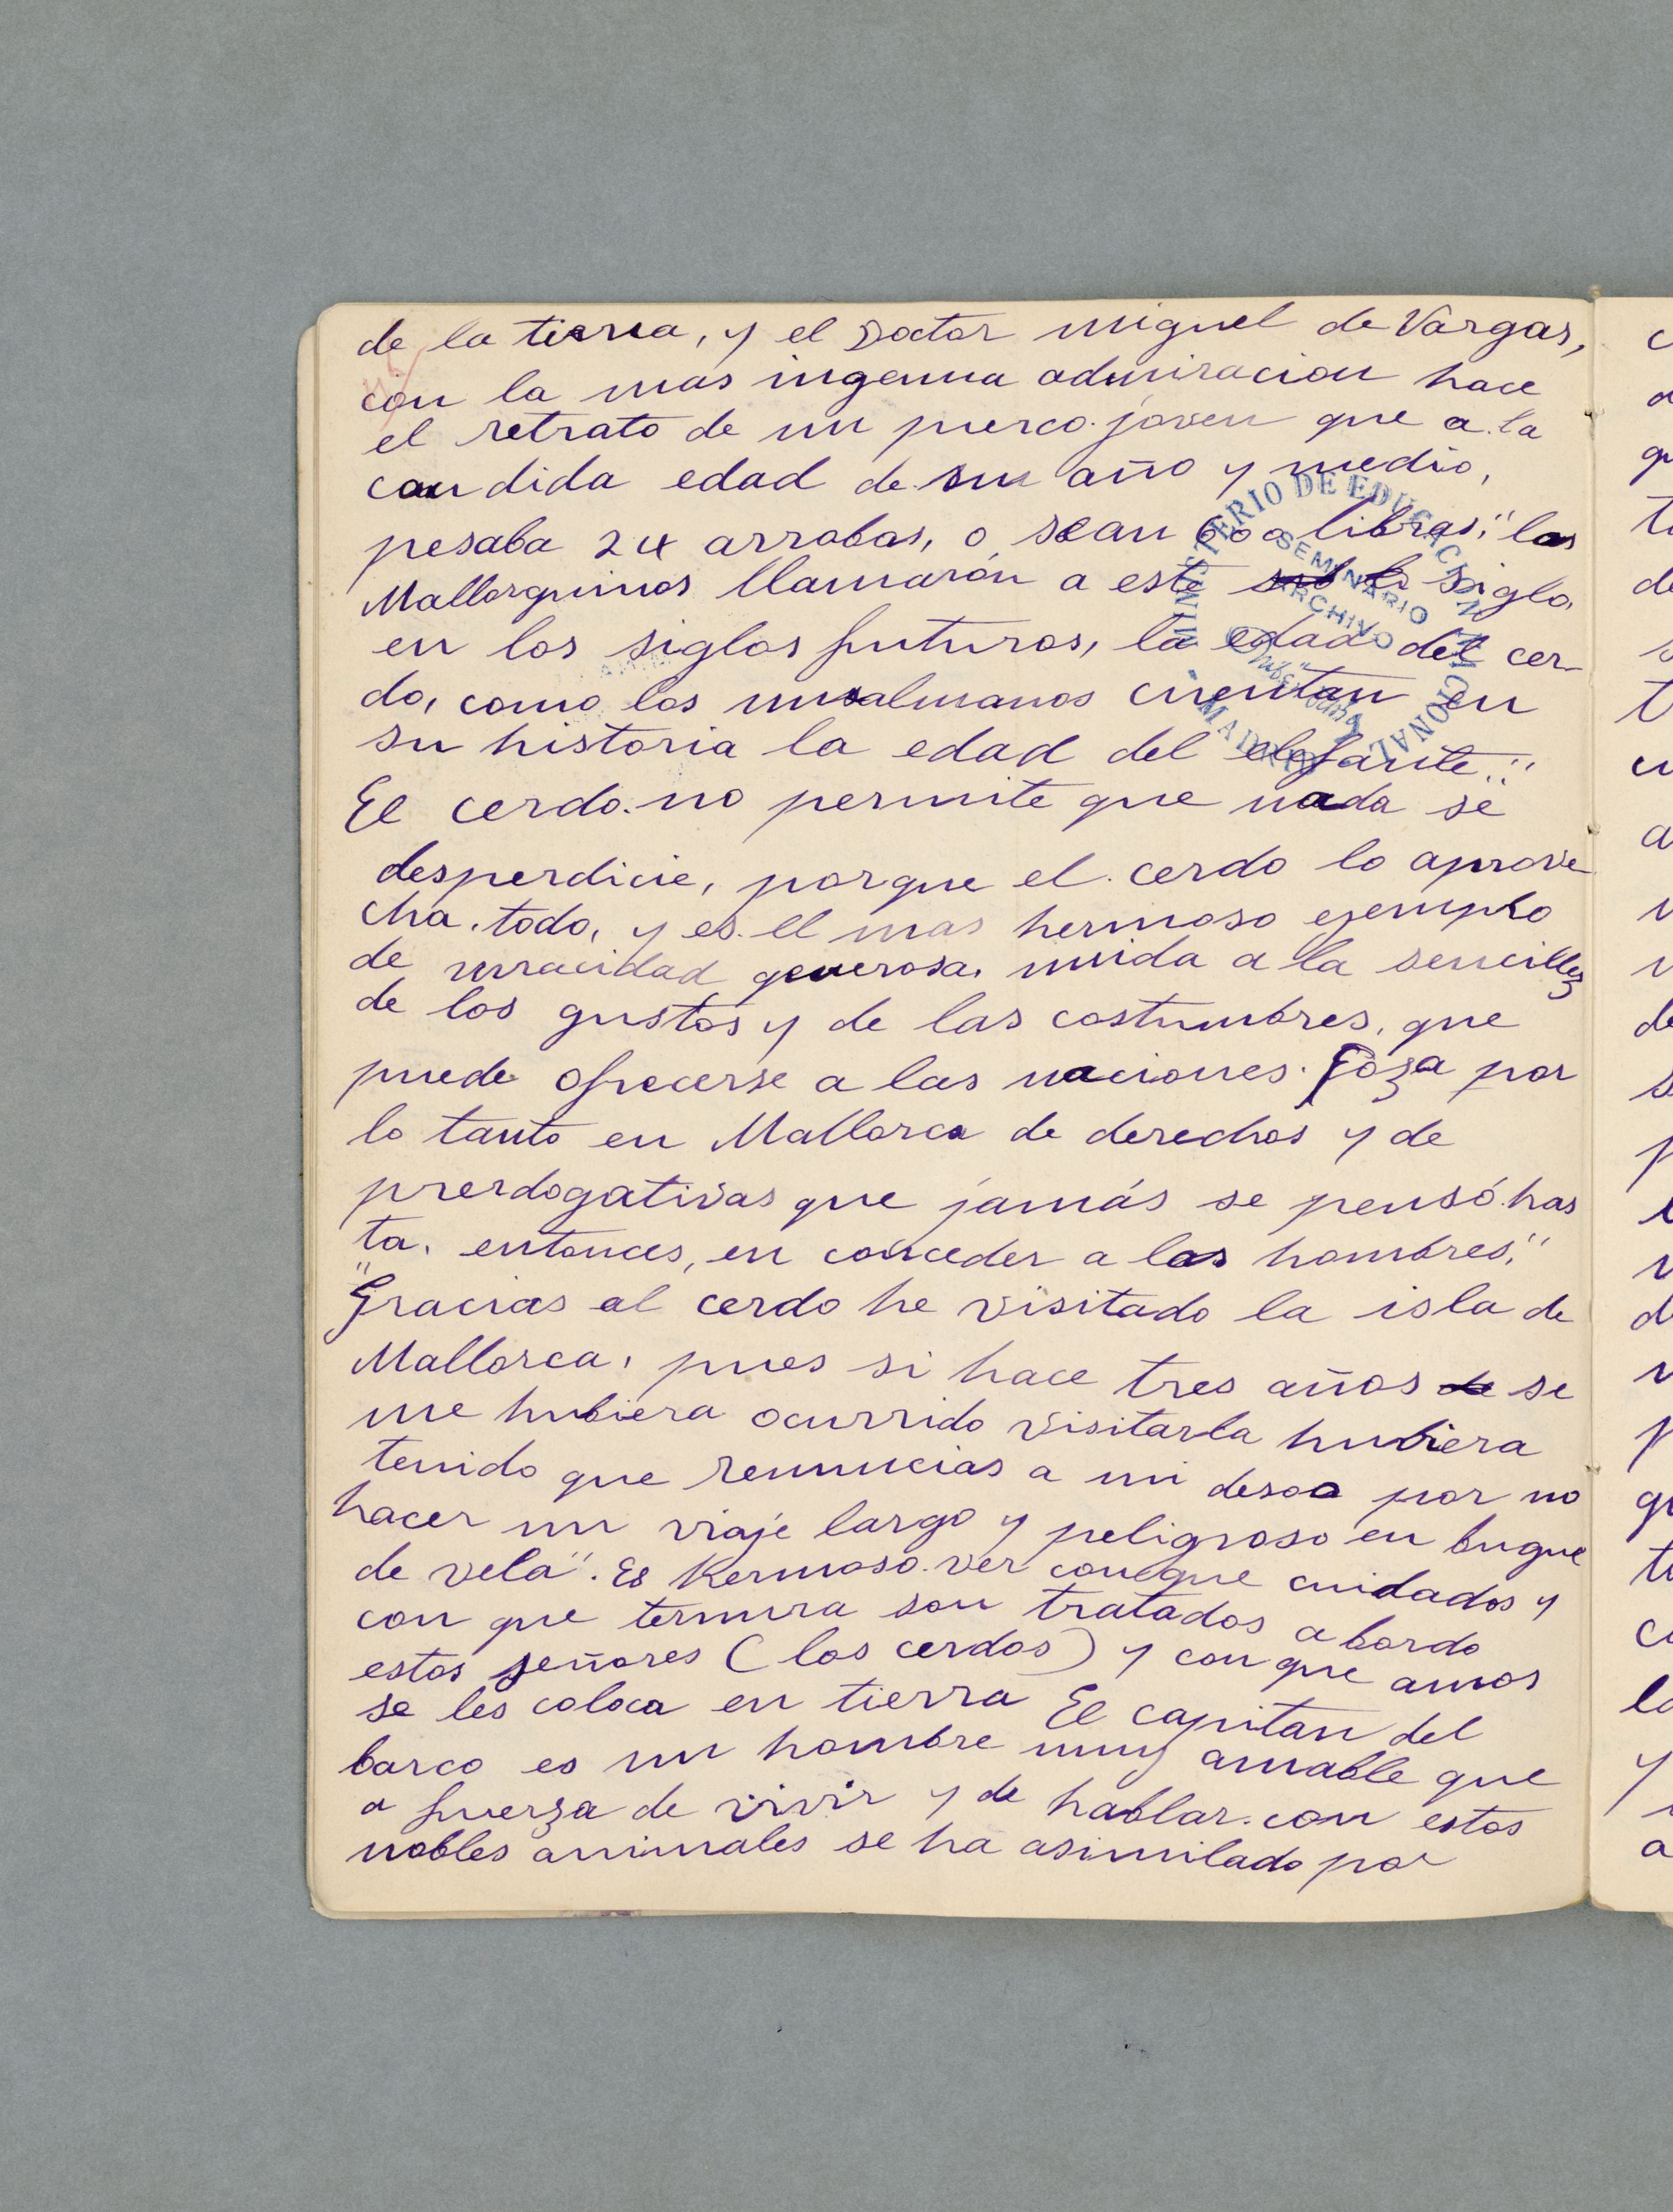 de la tierra, y el Doctor Miguel de Vargas,
con la mas ingenua admiracion hace
el retrato de un puerco joven que a la
candida edad de un año y medio,
pesaba 24 arrobas, o sean 600 libras," los
Mallorquinos llamarón a este siglo,
en los siglos futuros, la edad del cer-
do, como los musalmanos cuentan en
su historia la edad del elefante.."
El cerdo no permite que nada se
desperdicie, porque el cerdo lo aprove
cha todo, y es el mas hermoso ejemplo
de voracidad generosa, unida a la sencillez
de los gustos y de las costumbres, que
puede ofrecerse a las naciones. Goza por
lo tanto en Mallorca de derechos y de
prerdogativas que jamás se pensó has
ta, entonces, en conceder a los hombres,"
"Gracias al cerdo he visitado la isla de
Mallorca, pues si hace tres años de se
me hubiera ocurrido visitarla hubiera
tenido que renuncias a mi deseo por no
hacer un viaje largo y peligroso en buque
de vela". Es hermoso ver con que cuidados y
con que ternura son tratados a bordo
estos señores (los cerdos) y con que amor
se les coloca en tierra El capitan del
barco es un hombre muy amable que
a fuerza de vivir y de hablar con estos
nobles animales se ha asimilado por
MINISTERIO DE EDUCACION NACIONAL
SEMINARIO
ARCHIVO
MADRID